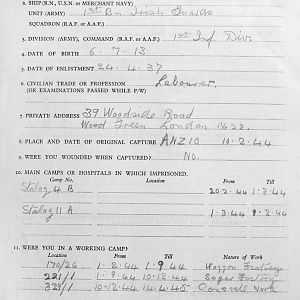 2. SHIP (R.N., U.S.N. or MERCHANT NAVY)
UNIT (ARMY) 1st Bn Irish Guards
SQUADRON (R.A.F. or A.A.F.)
3. DIVISION (ARMY), COMMAND (R.A.F. or A.A.F.) 1st Inf Div.
4. DATE OF BIRTH 6.7.13
5. DATE OF ENLISTMENT 24.4.37
6. CIVILIAN TRADE OR PROFESSION
(OR EXAMINATIONS PASSED WHILE P/W) Labourer.
7. PRIVATE ADDRESS 39 Woodside Road
Wood Green London N.22.
8. PLACE AND DATE OF ORIGINAL CAPTURE ANZIO 10.2.44
9. WERE YOU WOUNDED WHEN CAPTURED? No.
10. MAIN CAMPS OR HOSPITALS IN WHICH IMPRISONED.
Camp No. Location From Till
Stalag 4B 20.2.44 1.3.44
Stalag 11A 1.3.44 .2.44
11. WERE YOU IN A WORKING CAMP?
Location From Till Nature of Work
170/26 1.2.44 1.9.44 Waggon Factory
221/1 1.9.44 10.12.44 Sugar Factory
329/1 10.12.44 45 Concrete Work